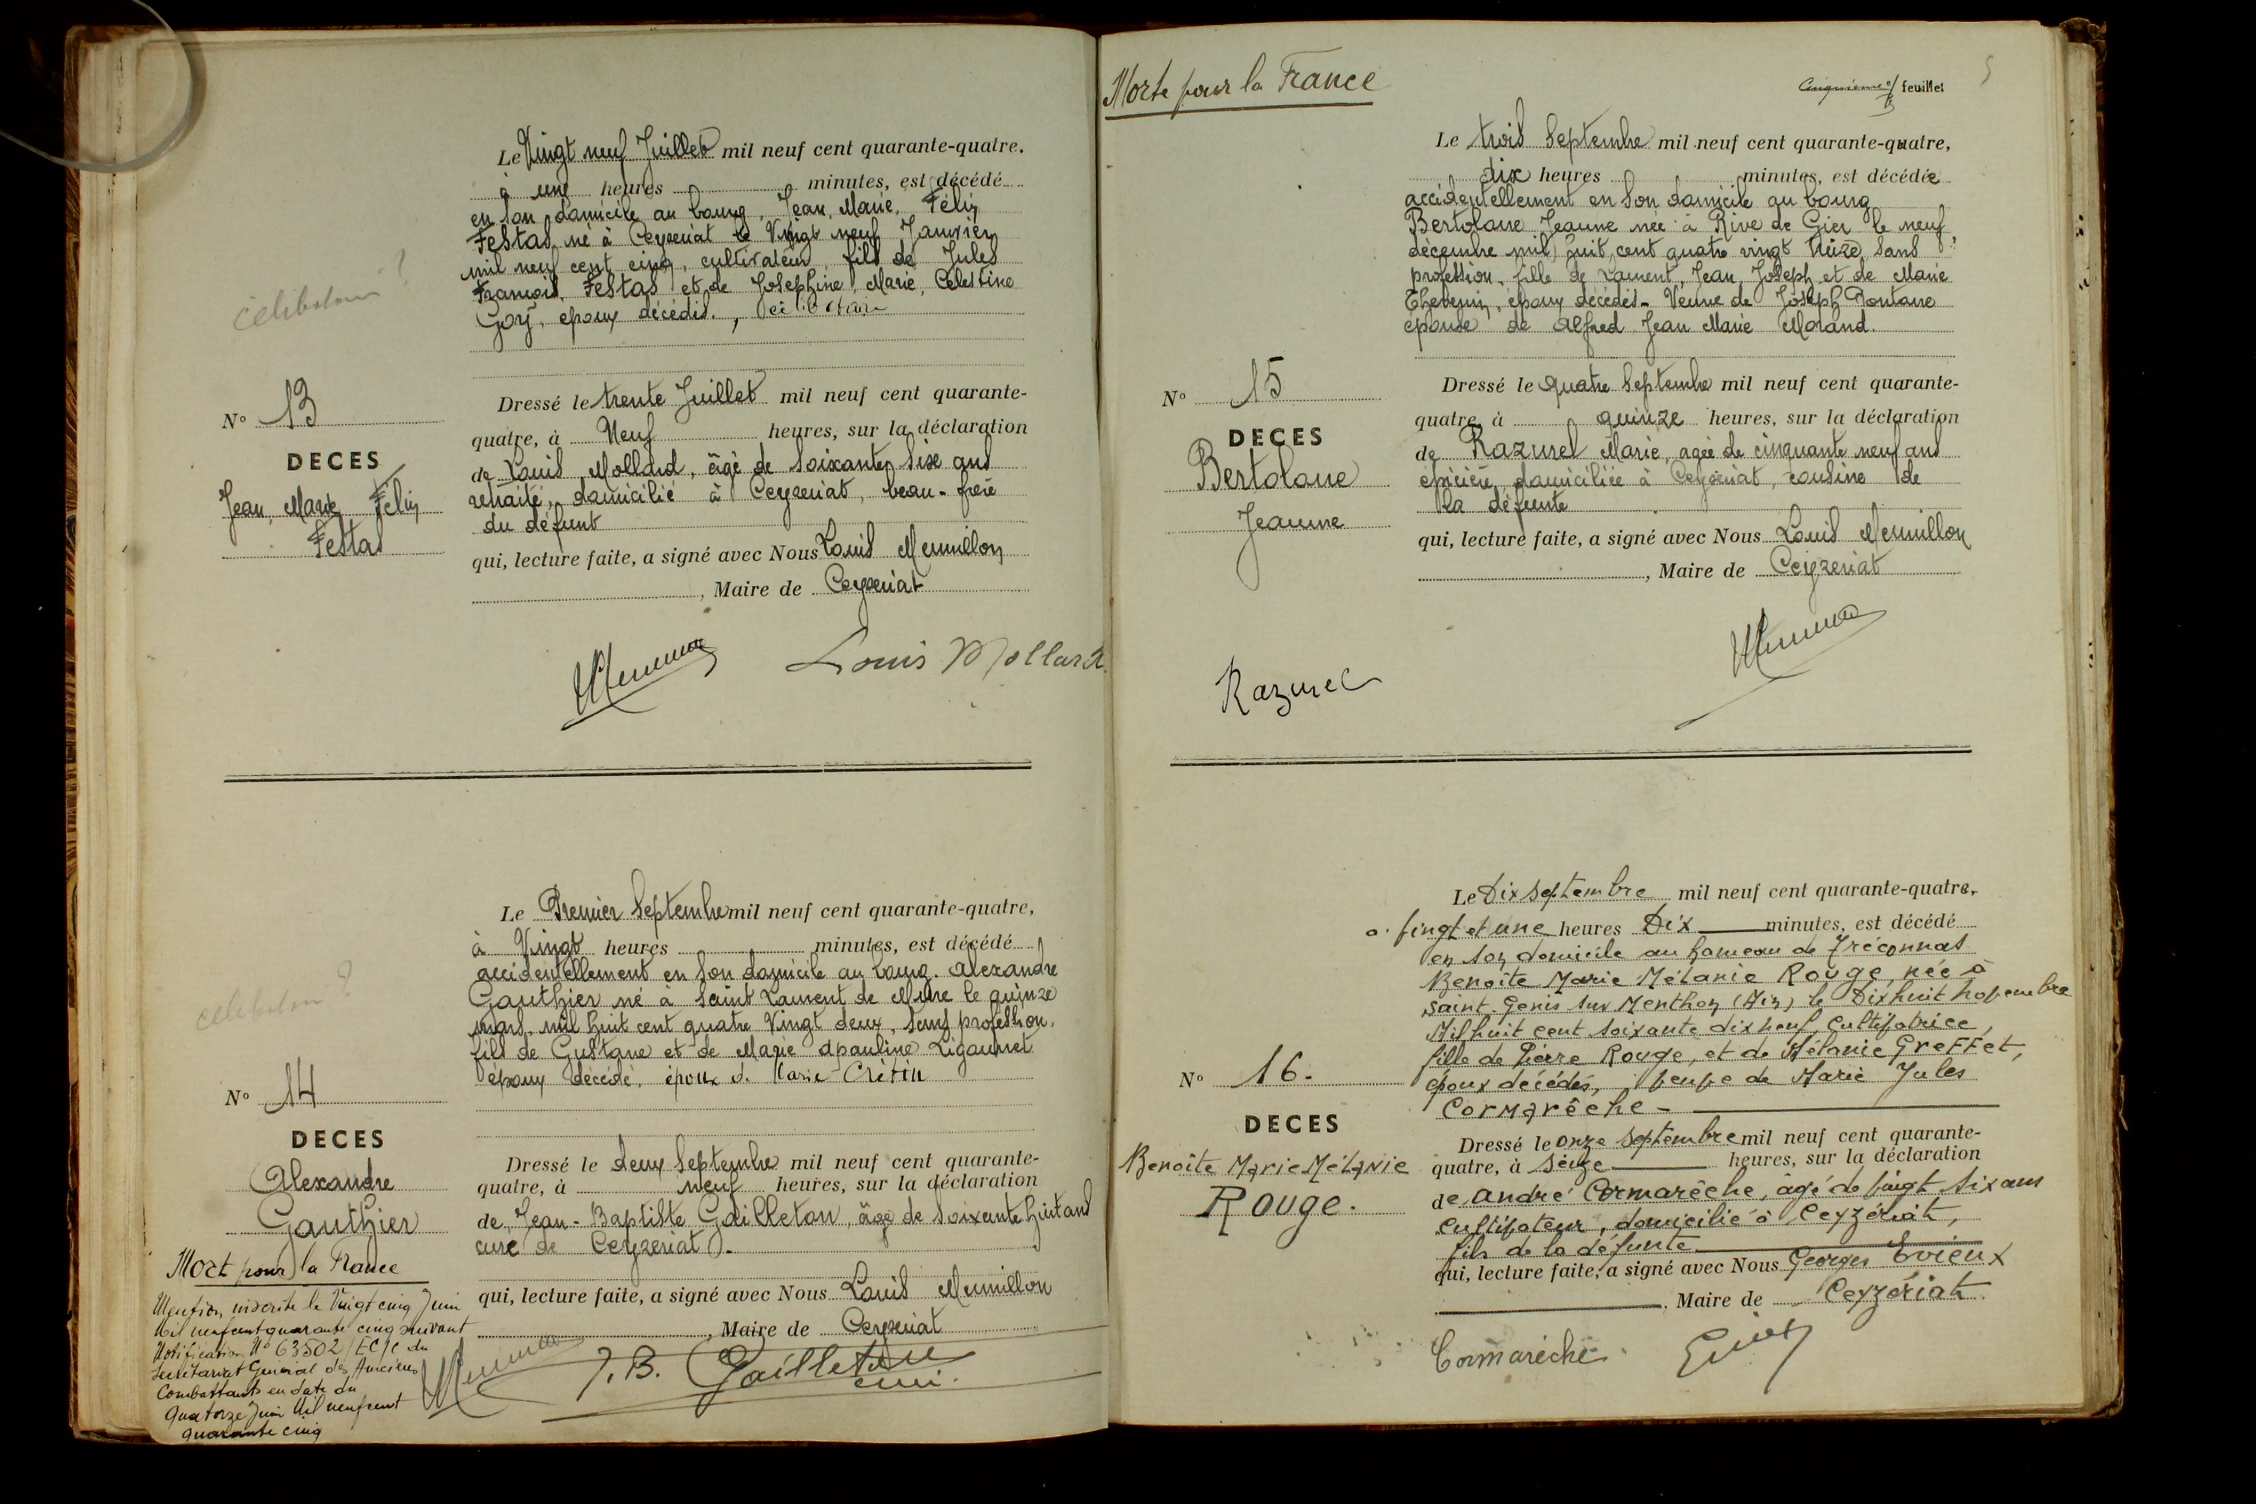 célibataire ?
Le Vingt neuf Juillet mil neuf cent quarante-quatre.
à une heures minutes, est décédé
en son domicile au bourg, Jean, Marie, Félix
Festas, né à Ceyzeriat le Vingt neuf Janvier
mil neuf cent cinq, cultivateur, fils de Jules
François, Festas et de Josephine, Marie, Celestine
Goy, epoux décédés., célibataire
N° 13
DECES
Jean, Marie, Félix
Festas
Dressé le trente Juillet mil neuf cent quarante-
quatre, à Neuf heures, sur la déclaration
de Louis Mollard, âgé de soixante six ans
retraité, domicilié à Ceyzeriat, beau-frère
du défunt
qui, lecture faite, a signé avec Nous Louis Meunillon
, Maire de Ceyzeriat
Louis Mollard
celibataire ?
Le Premier Septembre mil neuf cent quarante-quatre,
à Vingt heures minutes, est décédé
accidentellement en son domicile au bourg. Alexandre
Gauthier né à Saint Laurent de Mure le quinze
mars, mil huit cent quatre Vingt deux, sans profession,
fils de Gustave et de Marie Apauline Ligaunnet
époux décédé, époux d. Marie Crétin
N° 14
DECES
Alexandre
Gauthier
Mort pour la France
Mention inscrite le Vingt cinq Juin
Mil neuf cent quarante cinq suivant
Notification N° 63502/EC/C du
Secrétariat Général des Anciens
Combattants en date du
quatorze Juin Mil neuf cent
quarante cinq
Dressé le deux Septembre mil neuf cent quarante-
quatre, à neuf heures, sur la déclaration
de Jean-Baptiste Gailleton, âgé de soixante huit ans
curé de Ceyzeriat.
qui, lecture faite, a signé avec Nous Louis Meunillon
, Maire de Ceyzeriat
J. B. Gailleton
curé.
Morte pour la France
Cinquième feuillet
5
Le trois Septembre mil neuf cent quarante-quatre,
dix heures minutes, est décédée
accidentellement en son domicile au bourg
Bertolone Jeanne née à Rive de Gier le neuf
décembre mil huit cent quatre vingt treize, sans
profession, fille de Laurent, Jean Joseph et de Marie
Thevenin, époux décédés. Veuve de Joseph Fontane
épouse de Alfred Jean Marie Morand.
N° 15
DECES
Bertolone
Jeanne
Dressé le quatre Septembre mil neuf cent quarante-
quatre, à quinze heures, sur la déclaration
de Razurel Marie, agée de cinquante neuf ans
épicière, domiciliée à Ceyzériat, cousine de
la défunte
qui, lecture faite, a signé avec Nous Louis Meunillon
, Maire de Ceyzeriat
Razurel
Le Dix septembre mil neuf cent quarante-quatre,
à Vingt et une heures Dix minutes, est décédé
en son domicile au hameau de Tréconnas
Benoîte Marie Mélanie Rouge, née à
Saint Genis sur Menthon (Ain) le Dix huit novembre
Mil huit cent soixante dix neuf, Cultivatrice,
fille de Pierre Rouge, et de Mélanie Greffet,
époux décédés, veuve de Marie Jules
Cormarêche -
N° 16.
DECES
Benoîte Marie Mélanie
Rouge.
Dressé le onze septembre mil neuf cent quarante-
quatre, à seize heures, sur la déclaration
de André Cormarêche, âgé de vingt six ans
cultivateur, domicilié à Ceyzériat,
fils de la défunte
qui, lecture faite, a signé avec Nous Georges Evieux
, Maire de Ceyzériat
Cormarêche